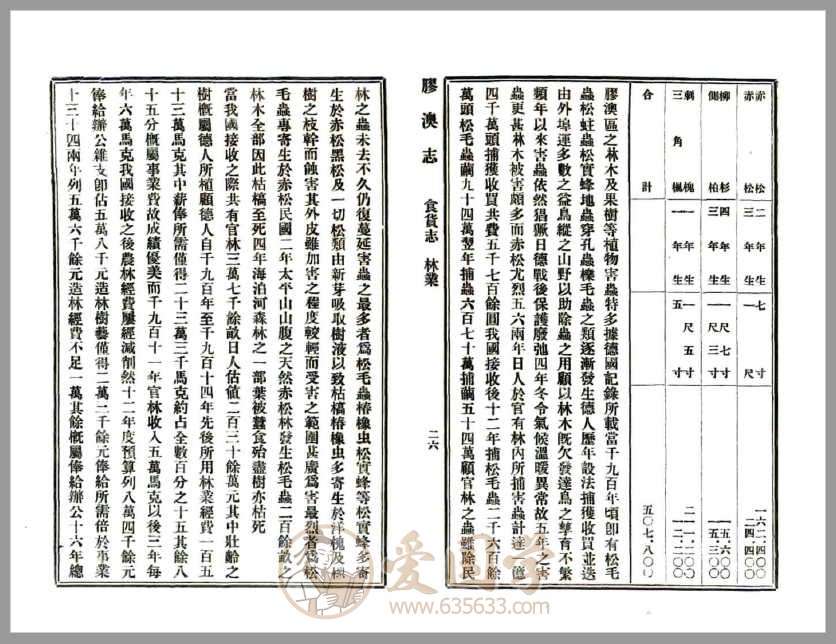 赤松 二年生 七寸 一六二.四〇〇
赤松 三年生 一尺 二四.四〇〇
柳杉 四年生 一尺七寸 五.六〇〇
側柏 三年生 一尺三寸 一五.三〇〇
刺槐 一年生 一尺五寸 二一.二〇〇
三角楓 一年生 五寸 一一.二〇〇
合計 五〇七.八〇〇
膠澳區之林木及果樹等植物害蟲特多據德國記錄所載當千九百年頃卽有松毛
蟲松蛀蟲松實蜂地蟲穿孔蟲櫟毛蟲之類逐漸發生德人歷年設法捕獲收買並迭
由外埠運多數之益鳥縱之山野以助除蟲之用顧以林木旣欠發達鳥之孳育不繁
類年以來害蟲依然猖獗日德戰後保護廢弛四年冬令氣候溫暖異常故五年之害
蟲更甚林木被害頗多而赤松尤烈五六兩年日人於官有林內所捕害蟲計達一億
四千萬頭捕獲收買共費五千七百餘圓我國接收後十二年捕松毛蟲二千六百餘
萬頭松毛蟲繭九十四萬翌年捕蟲六百七十萬捕繭五十四萬顧官林之蟲雖除民
膠澳志 食貨志 林業 二六
林之蟲未去不久仍復蔓延害蟲之最多者爲松毛蟲椿橡虫松實蜂等松實蜂多寄
生於赤松黑松及一切松類由新芽吸取樹液以致枯槁椿橡虫多寄生於洋槐及櫟
樹之枝幹而蝕害其外皮雖加害之程度較輕而受害之範圍甚廣爲害最烈者爲松
毛蟲專寄生於赤松民國二年太平山山腹之天然赤松林發生松毛蟲二百餘畝之
林木全部因此枯槁至死四年海泊河森林之一部葉被蠶食殆盡樹亦枯死
當我國接收之際共有官林三萬七千餘畝日人估値二百三十餘萬元其中壯齡之
樹槪屬德人所植顧德人自千九百年至千九百十四年先後所用林業經費一百五
十三萬馬克其中薪俸所需僅得二十三萬三千馬克約占全數百分之十五其餘八
十五分槪屬事業費故成績優美而千九百十一年官林收入五萬馬克以後三年每
年六萬馬克我國接收之後農林經費屢經減削然十二年度預算列八萬四千餘元
俸給辦公雜支卽佔五萬八千元造林樹藝僅得二萬二千餘元俸給所需倍於事業
十三十四兩年列五萬六千餘元造林經費不足一萬其餘槪屬俸給辦公十六年總
爱国学
www.635633.com